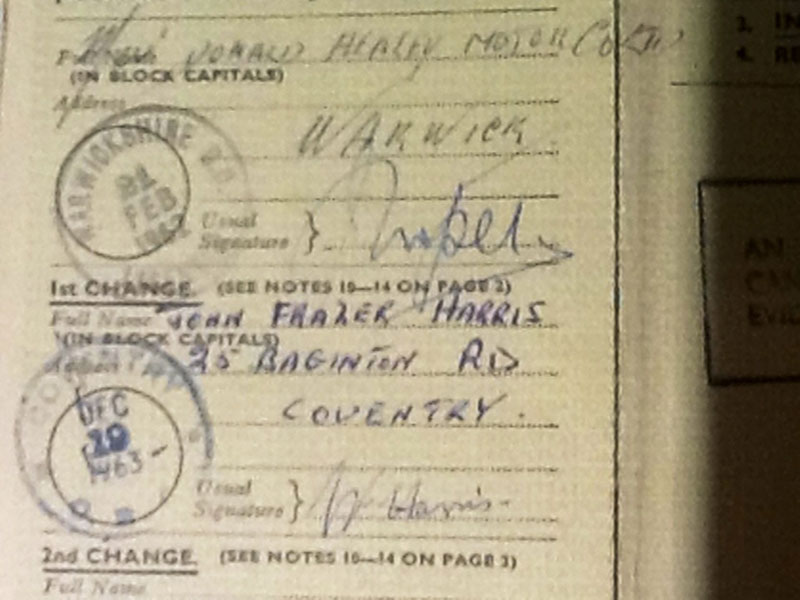 DONALD HEALEY MOTOR Co LTD
(IN BLOCK CAPITALS)
Address
WARWICK.
WARWICKSHIRE
FEB
Usual
Signature
1st CHANGE. (SEE NOTES 10—14 ON PAGE 2)
Full Name JOHN FRAZER HARRIS
(IN BLOCK CAPITALS)
Address 25 BAGINTON RD
COVENTRY.
COVENTRY
DEC
19
1963
Usual
Signature Harris
2nd CHANGE. (SEE NOTES 10—14 ON PAGE 2)
Full Name
3. IN
4. RE
AN
CAN
EVID